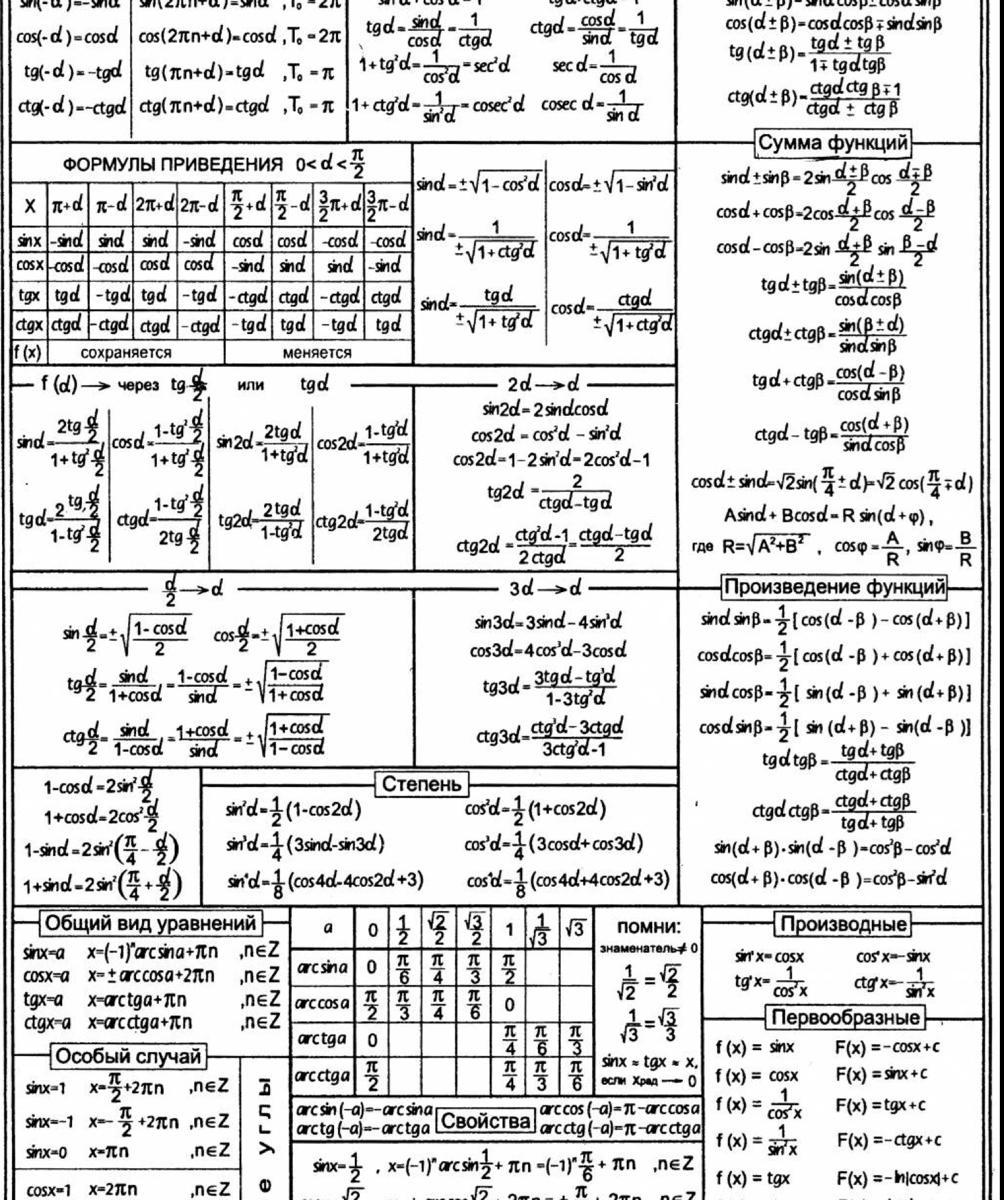 cos(-α)=cosα cos(2πn+α)=cosα ,T₀=2π
tg(-α)=-tgα tg(πn+α)=tgα ,T₀=π
ctg(-α)=-ctgα ctg(πn+α)=ctgα ,T₀=π
tgα=sinα/cosα=1/ctgα ctgα=cosα/sinα=1/tgα
1+tg²α=1/cos²α=sec²α secα=1/cosα
1+ctg²α=1/sin²α=cosec²α cosecα=1/sinα
cos(α±β)=cosαcosβ∓sinαsinβ
tg(α±β)=(tgα±tgβ)/(1∓tgαtgβ)
ctg(α±β)=(ctgαctgβ∓1)/(ctgα±ctgβ)
ФОРМУЛЫ ПРИВЕДЕНИЯ 0<α<π/2
x π+α π-α 2π+α 2π-α π/2+α π/2-α 3/2π+α 3/2π-α
sinx -sinα sinα sinα -sinα cosα cosα -cosα -cosα
cosx -cosα -cosα cosα cosα -sinα sinα sinα -sinα
tgx tgα -tgα tgα -tgα -ctgα ctgα -ctgα ctgα
ctgx ctgα -ctgα ctgα -ctgα -tgα tgα -tgα tgα
f(x) сохраняется меняется
sinα=±√(1-cos²α) cosα=±√(1-sin²α)
sinα=1/(±√(1+ctg²α)) cosα=1/(±√(1+tg²α))
sinα=tgα/(±√(1+tg²α)) cosα=ctgα/(±√(1+ctg²α))
Сумма функций
sinα±sinβ=2sin (α±β)/2 cos (α∓β)/2
cosα+cosβ=2cos (α+β)/2 cos (α-β)/2
cosα-cosβ=2sin (α+β)/2 sin (β-α)/2
tgα±tgβ=sin(α±β)/(cosαcosβ)
ctgα±ctgβ=sin(β±α)/(sinαsinβ)
tgα+ctgβ=cos(α-β)/(cosαsinβ)
ctgα-tgβ=cos(α+β)/(sinαcosβ)
cosα±sinα=√2sin(π/4±α)=√2 cos(π/4∓α)
Asinα+Bcosα=R sin(α+φ),
где R=√(A²+B²) , cosφ=A/R, sinφ=B/R
f(α)→ через tg α/2 или tgα
sinα=2tg α/2/(1+tg² α/2) cosα=(1-tg² α/2)/(1+tg² α/2) sin2α=2tgα/(1+tg²α) cos2α=(1-tg²α)/(1+tg²α)
tgα=2tg α/2/(1-tg² α/2) ctgα=(1-tg² α/2)/(2tg α/2) tg2α=2tgα/(1-tg²α) ctg2α=(1-tg²α)/(2tgα)
2α→α
sin2α=2sinαcosα
cos2α=cos²α-sin²α
cos2α=1-2sin²α=2cos²α-1
tg2α=2/(ctgα-tgα)
ctg2α=(ctg²α-1)/(2ctgα)=(ctgα-tgα)/2
α/2→α
sin α/2=±√((1-cosα)/2) cos α/2=±√((1+cosα)/2)
tg α/2=sinα/(1+cosα)=(1-cosα)/sinα=±√((1-cosα)/(1+cosα))
ctg α/2=sinα/(1-cosα)=(1+cosα)/sinα=±√((1+cosα)/(1-cosα))
3α→α
sin3α=3sinα-4sin³α
cos3α=4cos³α-3cosα
tg3α=(3tgα-tg³α)/(1-3tg²α)
ctg3α=(ctg³α-3ctgα)/(3ctg²α-1)
Произведение функций
sinαsinβ=1/2[cos(α-β)-cos(α+β)]
cosαcosβ=1/2[cos(α-β)+cos(α+β)]
sinαcosβ=1/2[sin(α-β)+sin(α+β)]
cosαsinβ=1/2[sin(α+β)-sin(α-β)]
tgαtgβ=(tgα+tgβ)/(ctgα+ctgβ)
ctgαctgβ=(ctgα+ctgβ)/(tgα+tgβ)
sin(α+β)·sin(α-β)=cos²β-cos²α
cos(α+β)·cos(α-β)=cos²β-sin²α
1-cosα=2sin² α/2
1+cosα=2cos² α/2
1-sinα=2sin²(π/4-α/2)
1+sinα=2sin²(π/4+α/2)
Степень
sin²α=1/2(1-cos2α) cos²α=1/2(1+cos2α)
sin³α=1/4(3sinα-sin3α) cos³α=1/4(3cosα+cos3α)
sin⁴α=1/8(cos4α-4cos2α+3) cos⁴α=1/8(cos4α+4cos2α+3)
Общий вид уравнений
sinx=a x=(-1)ⁿarcsina+πn ,n∈Z
cosx=a x=±arccosa+2πn ,n∈Z
tgx=a x=arctga+πn ,n∈Z
ctgx=a x=arcctga+πn ,n∈Z
Особый случай
sinx=1 x=π/2+2πn ,n∈Z
sinx=-1 x=-π/2+2πn ,n∈Z
sinx=0 x=πn ,n∈Z
cosx=1 x=2πn ,n∈Z
е углы
a 0 1/2 √2/2 √3/2 1 1/√3 √3
arcsina 0 π/6 π/4 π/3 π/2
arccosa π/2 π/3 π/4 π/6 0
arctga 0 π/4 π/6 π/3
arcctga π/2 π/4 π/3 π/6
ПОМНИ:
знаменатель≠0
1/√2=√2/2
1/√3=√3/3
sinx ≈ tgx ≈ x,
если Xрад→0
arcsin(-a)=-arcsina
arctg(-a)=-arctga
Свойства
arccos(-a)=π-arccosa
arcctg(-a)=π-arcctga
sinx=1/2 , x=(-1)ⁿarcsin1/2+πn=(-1)ⁿπ/6+πn ,n∈Z
Производные
sin'x=cosx cos'x=-sinx
tg'x=1/cos²x ctg'x=-1/sin²x
Первообразные
f(x)=sinx F(x)=-cosx+c
f(x)=cosx F(x)=sinx+c
f(x)=1/cos²x F(x)=tgx+c
f(x)=1/sin²x F(x)=-ctgx+c
f(x)=tgx F(x)=-ln|cosx|+c